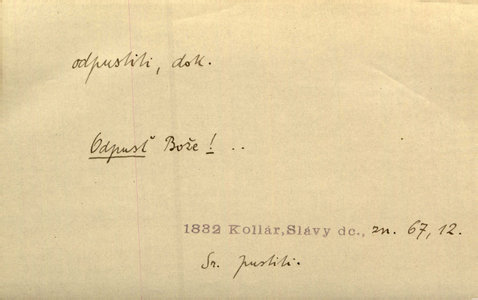 odpustiti, dok.
Odpusť Bože! ..
1832 Kollár, Slávy dc., zn. 67, 12.
Sr. pustiti.